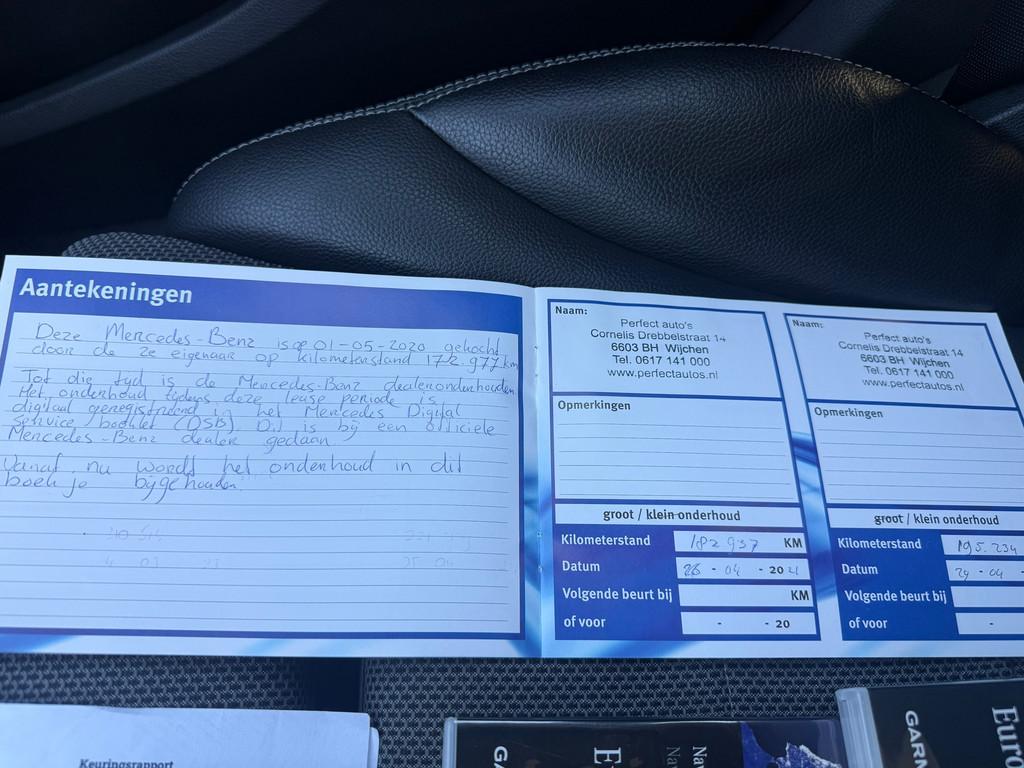 Aantekeningen
Deze Mercedes-Benz is op 01-05-2020 gekocht
door de 2e eigenaar op kilometerstand 172.977 km
Tot die tijd is de Mercedes-Benz dealeronderhouden.
Het onderhoud tijdens deze lease periode is
digitaal geregistreerd in het Mercedes Digital
Service booklet (DSB). Dit is bij een officiele
Mercedes-Benz dealer gedaan.
Vanaf nu wordt het onderhoud in dit
boekje bijgehouden.
Naam:
Perfect auto's
Cornelis Drebbelstraat 14
6603 BH Wijchen
Tel. 0617 141 000
www.perfectautos.nl
Opmerkingen
groot / klein onderhoud
Kilometerstand 182 937 KM
Datum 26 - 04 - 20 21
Volgende beurt bij KM
of voor - - 20
Naam:
Perfect auto's
Cornelis Drebbelstraat 14
6603 BH Wijchen
Tel. 0617 141 000
www.perfectautos.nl
Opmerkingen
groot / klein onderhoud
Kilometerstand 195.234
Datum 29 - 04 -
Volgende beurt bij
of voor -
Keuringsrapport
GA
E
Nav
Na
GARN
Euro